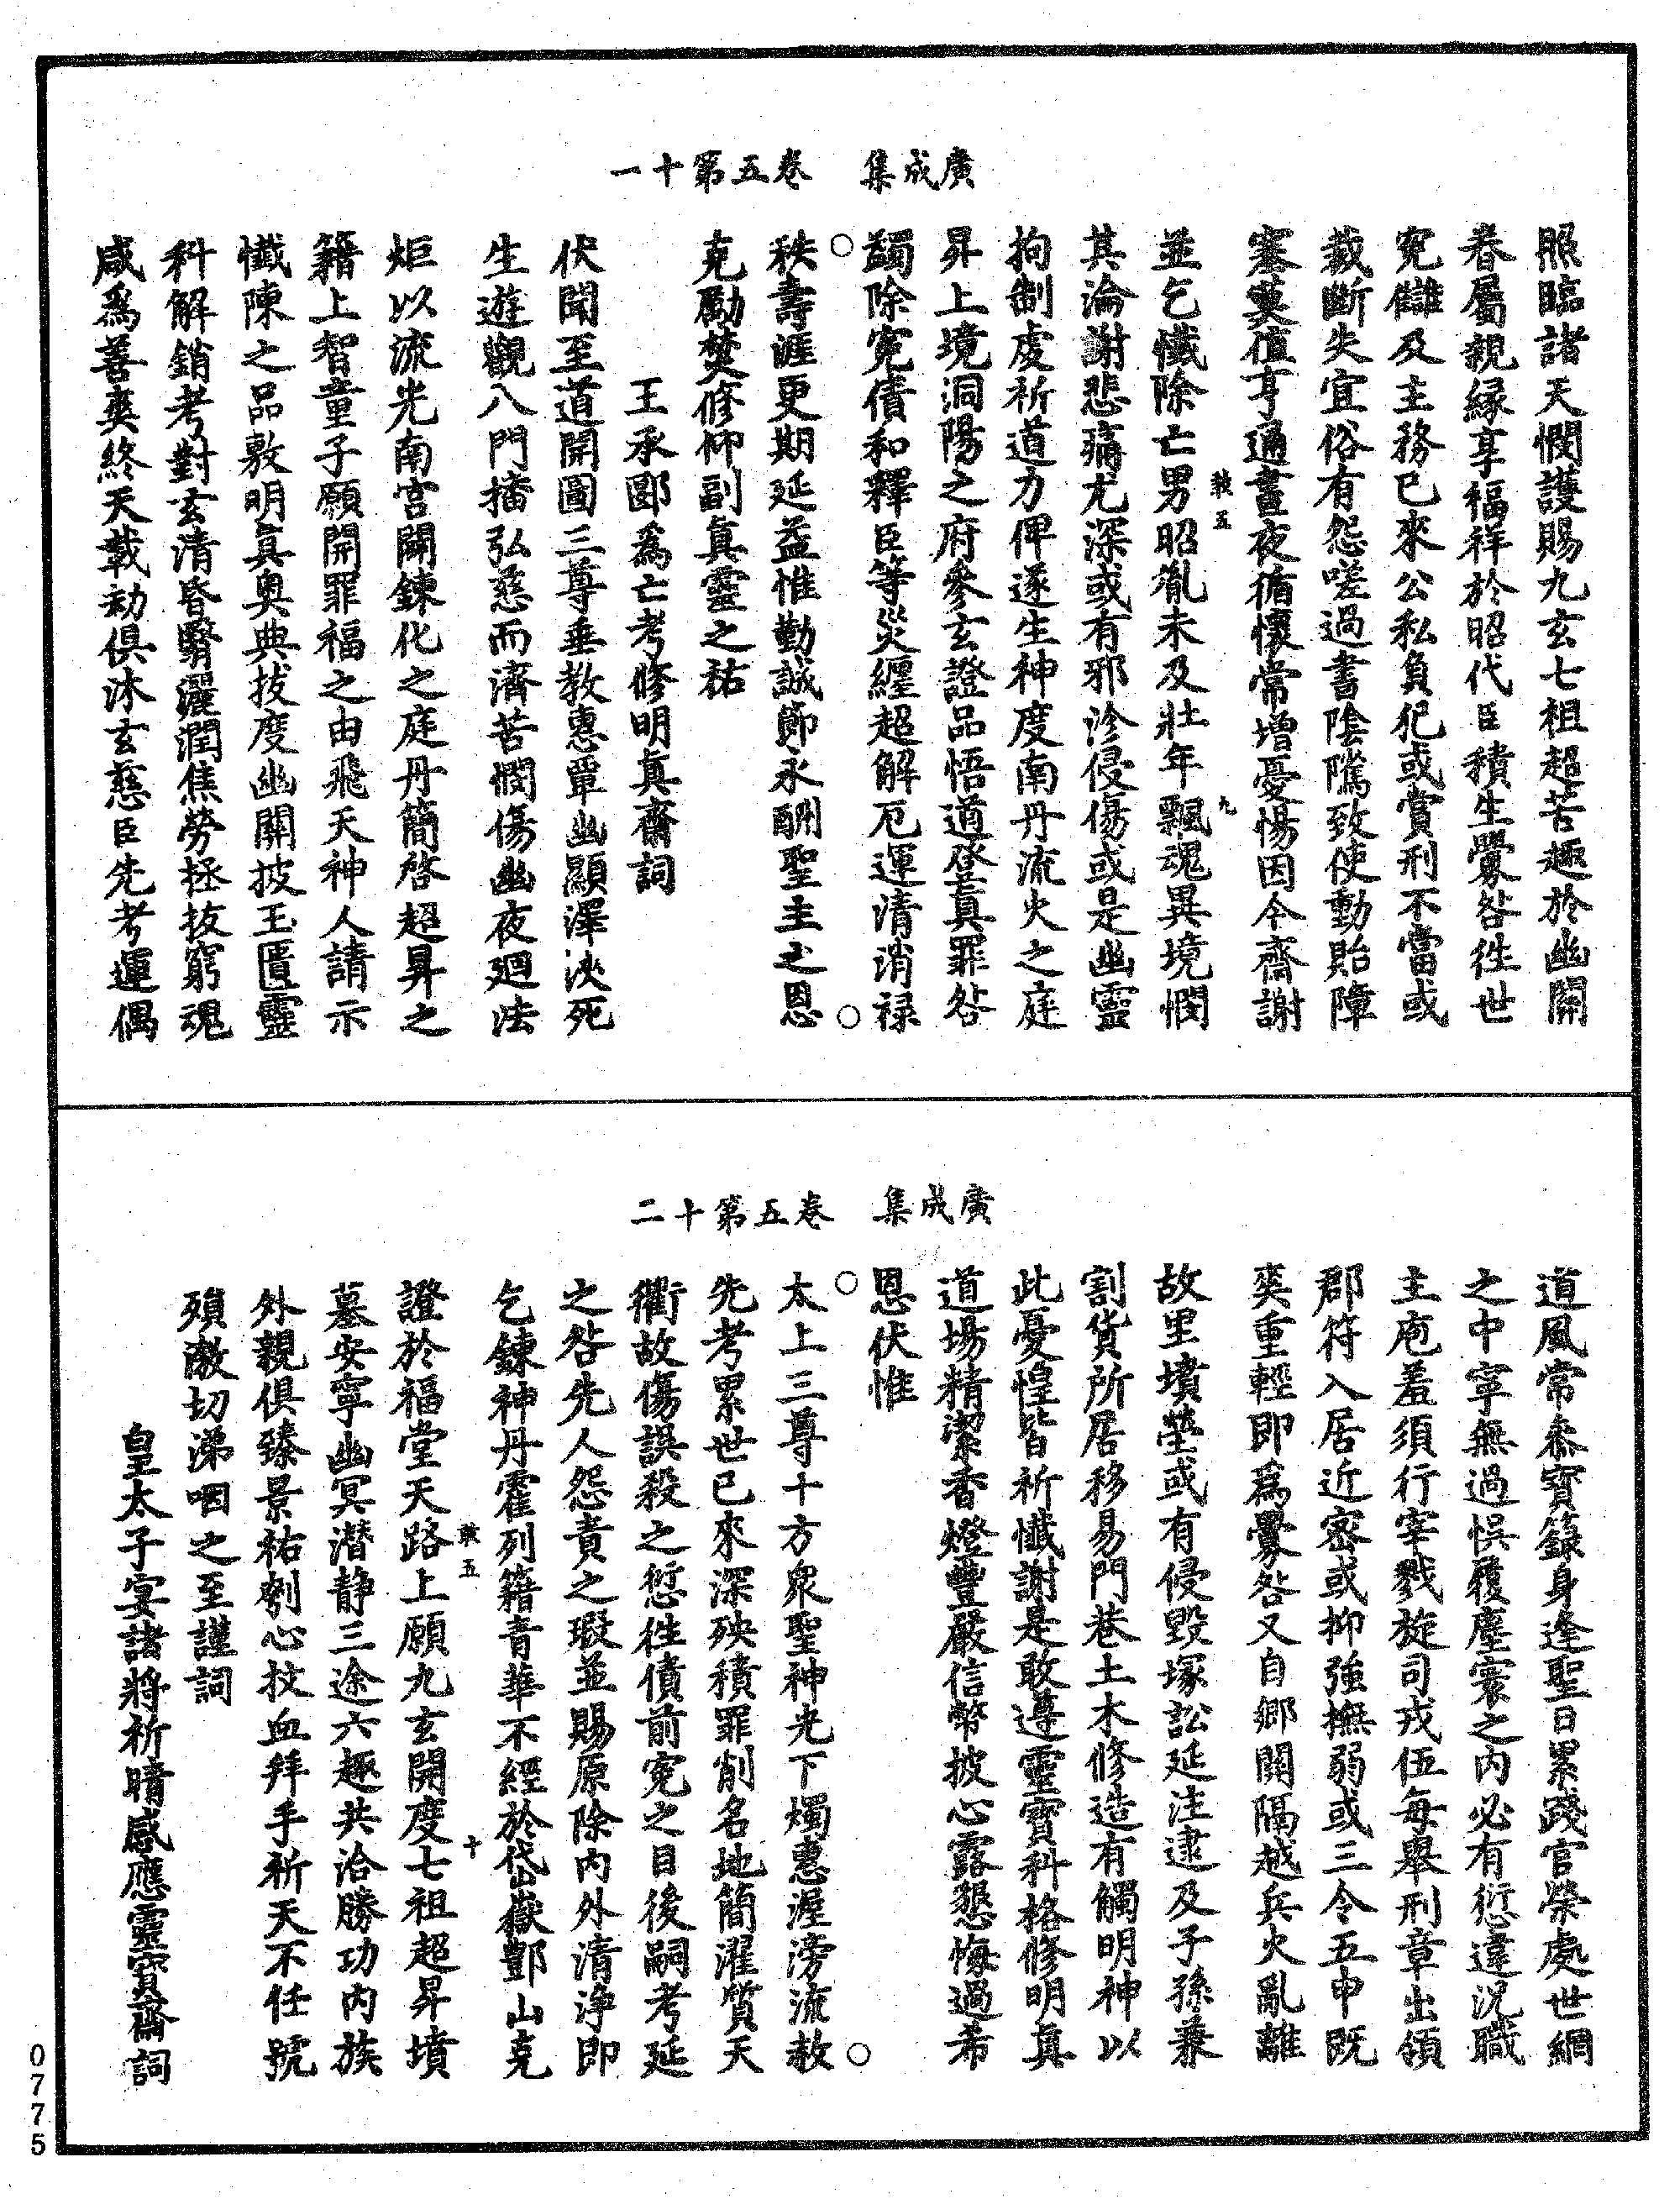 廣成集　卷五第十一
照臨諸天憫護賜九玄七祖超苦趣於幽關
眷屬親緣享福祥於昭代臣積生釁咎往世
冤讎及主務已來公私負犯或賞刑不當或
裁斷失宜俗有怨嗟過書陰隲致使動貽障
塞莫值亨通晝夜循懷常增憂惕因今齋謝
鼓五　九
並乞懺除亡男昭胤未及壯年飄魂異境憫
其淪謝悲痛尤深或有邪沴侵傷或是幽靈
拘制虔祈道力俾遂生神度南丹流火之庭
昇上境洞陽之府參玄證品悟道登真罪咎
蠲除冤債和釋臣等災纏超解厄運清消祿
秩壽涯更期延益惟勤誠節永酬聖主之恩
克勵焚修仰副真靈之祐
王承郾為亡考修明真齋詞
伏聞至道開圖三尊垂教惠覃幽顯澤浹死
生遊觀八門播弘慈而濟苦憫傷幽夜廻法
炬以流光南宮闢鍊化之庭丹簡啓超昇之
籍上智童子願開罪福之由飛天神人請示
懺陳之品敷明真奧典拔度幽關披玉匱靈
科解銷考對玄清昏翳灑潤焦勞拯拔窮魂
咸為善爽終天載劫俱沐玄慈臣先考運偶
廣成集　卷五第十二
道風常叅寶籙身逢聖日累踐官榮處世網
之中寧無過悞履塵寰之內必有愆違況職
主庖羞須行宰戮旋司戎伍每舉刑章出領
郡符入居近密或抑強撫弱或三令五申既
爽重輕即為釁咎又自鄉關隔越兵火亂離
故里墳塋或有侵毀塚訟延注逮及子孫兼
割貨所居移易門巷土木修造有觸明神以
此憂惶皆祈懺謝是敢遵靈寶科格修明真
道場精潔香燈豐嚴信幣披心露懇悔過希
恩伏惟
太上三尊十方衆聖神光下燭惠渥滂流赦
先考累世已來深殃積罪削名地簡濯質天
衢故傷誤殺之愆往債前冤之目後嗣考延
之咎先人怨責之瑕並賜原除內外清淨即
乞鍊神丹霍列籍青華不經於岱嶽酆山克
鼓五　十
證於福堂天路上願九玄開度七祖超昇墳
墓安寧幽冥潛靜三途六趣共洽勝功內族
外親俱臻景祐刳心抆血拜手祈天不任號
殞激切涕咽之至謹詞
皇太子宴諸將祈晴感應靈寶齋詞
0775